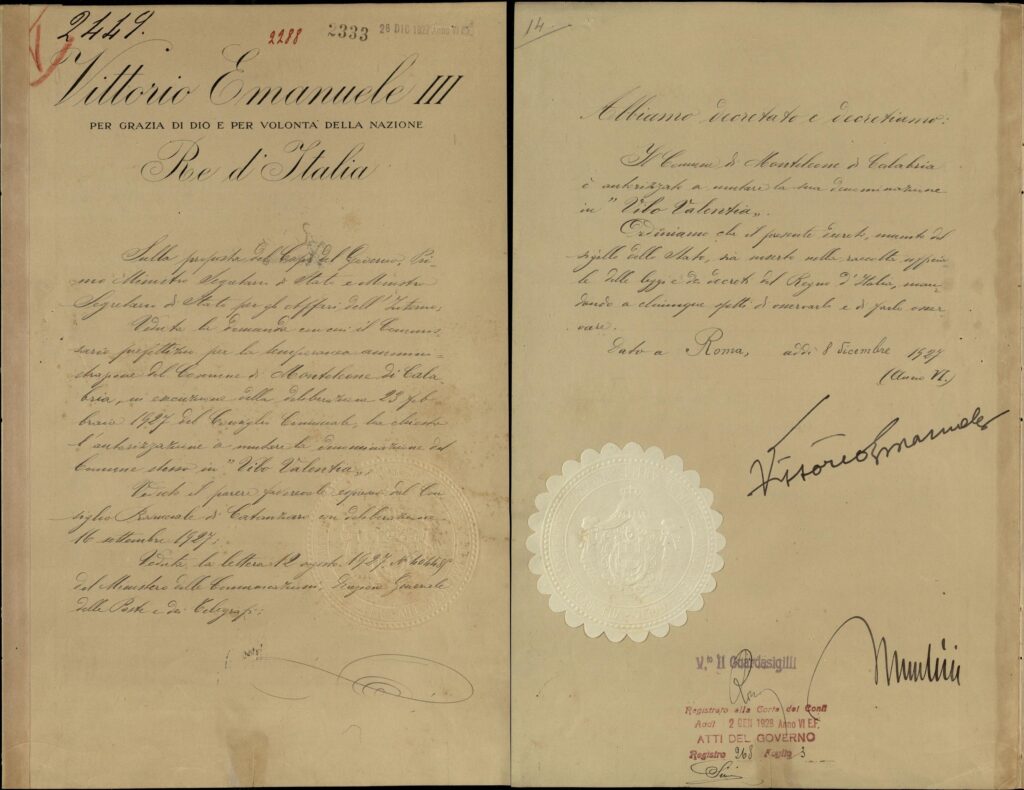 2449.
2288
2333
26 DIC 1927 Anno VI
Vittorio Emanuele III
PER GRAZIA DI DIO E PER VOLONTA' DELLA NAZIONE
Re d'Italia
Sulla proposta del Capo del Governo, Pri-
mo Ministro Segretario di Stato e Ministro
Segretario di Stato per gli Affari dell'Interno;
Veduta la domanda con cui il Commis-
sario prefettizio per la temporanea ammini-
strazione del Comune di Monteleone di Cala-
bria, in esecuzione della deliberazione 23 feb-
braio 1927 del Consiglio Comunale, ha chiesto
l'autorizzazione a mutare la denominazione del
Comune stesso in "Vibo Valentia„;
Veduto il parere favorevole espresso dal Con-
siglio Provinciale di Catanzaro con deliberazione
16 settembre 1927;
Veduta la lettera 12 agosto 1927 N°
del Ministero delle Comunicazioni, Direzione Generale
delle Poste e dei Telegrafi;
14
Abbiamo decretato e decretiamo:
Il Comune di Monteleone di Calabria
è autorizzato a mutare la sua denominazione
in "Vibo Valentia„.
Ordiniamo che il presente decreto, munito del
sigillo dello Stato, sia inserto nella raccolta ufficia-
le delle leggi e dei decreti del Regno d'Italia, man-
dando a chiunque spetti di osservarlo e di farlo osser-
vare.
Dato a Roma, addì 8 dicembre 1927
(Anno VI.)
Vittorio Emanuele
Mussolini
V.to Il Guardasigilli
Rocco
Registrato alla Corte dei Conti
Addì 2 GEN 1928 Anno VI E.F.
ATTI DEL GOVERNO
Registro 268 Foglio 3